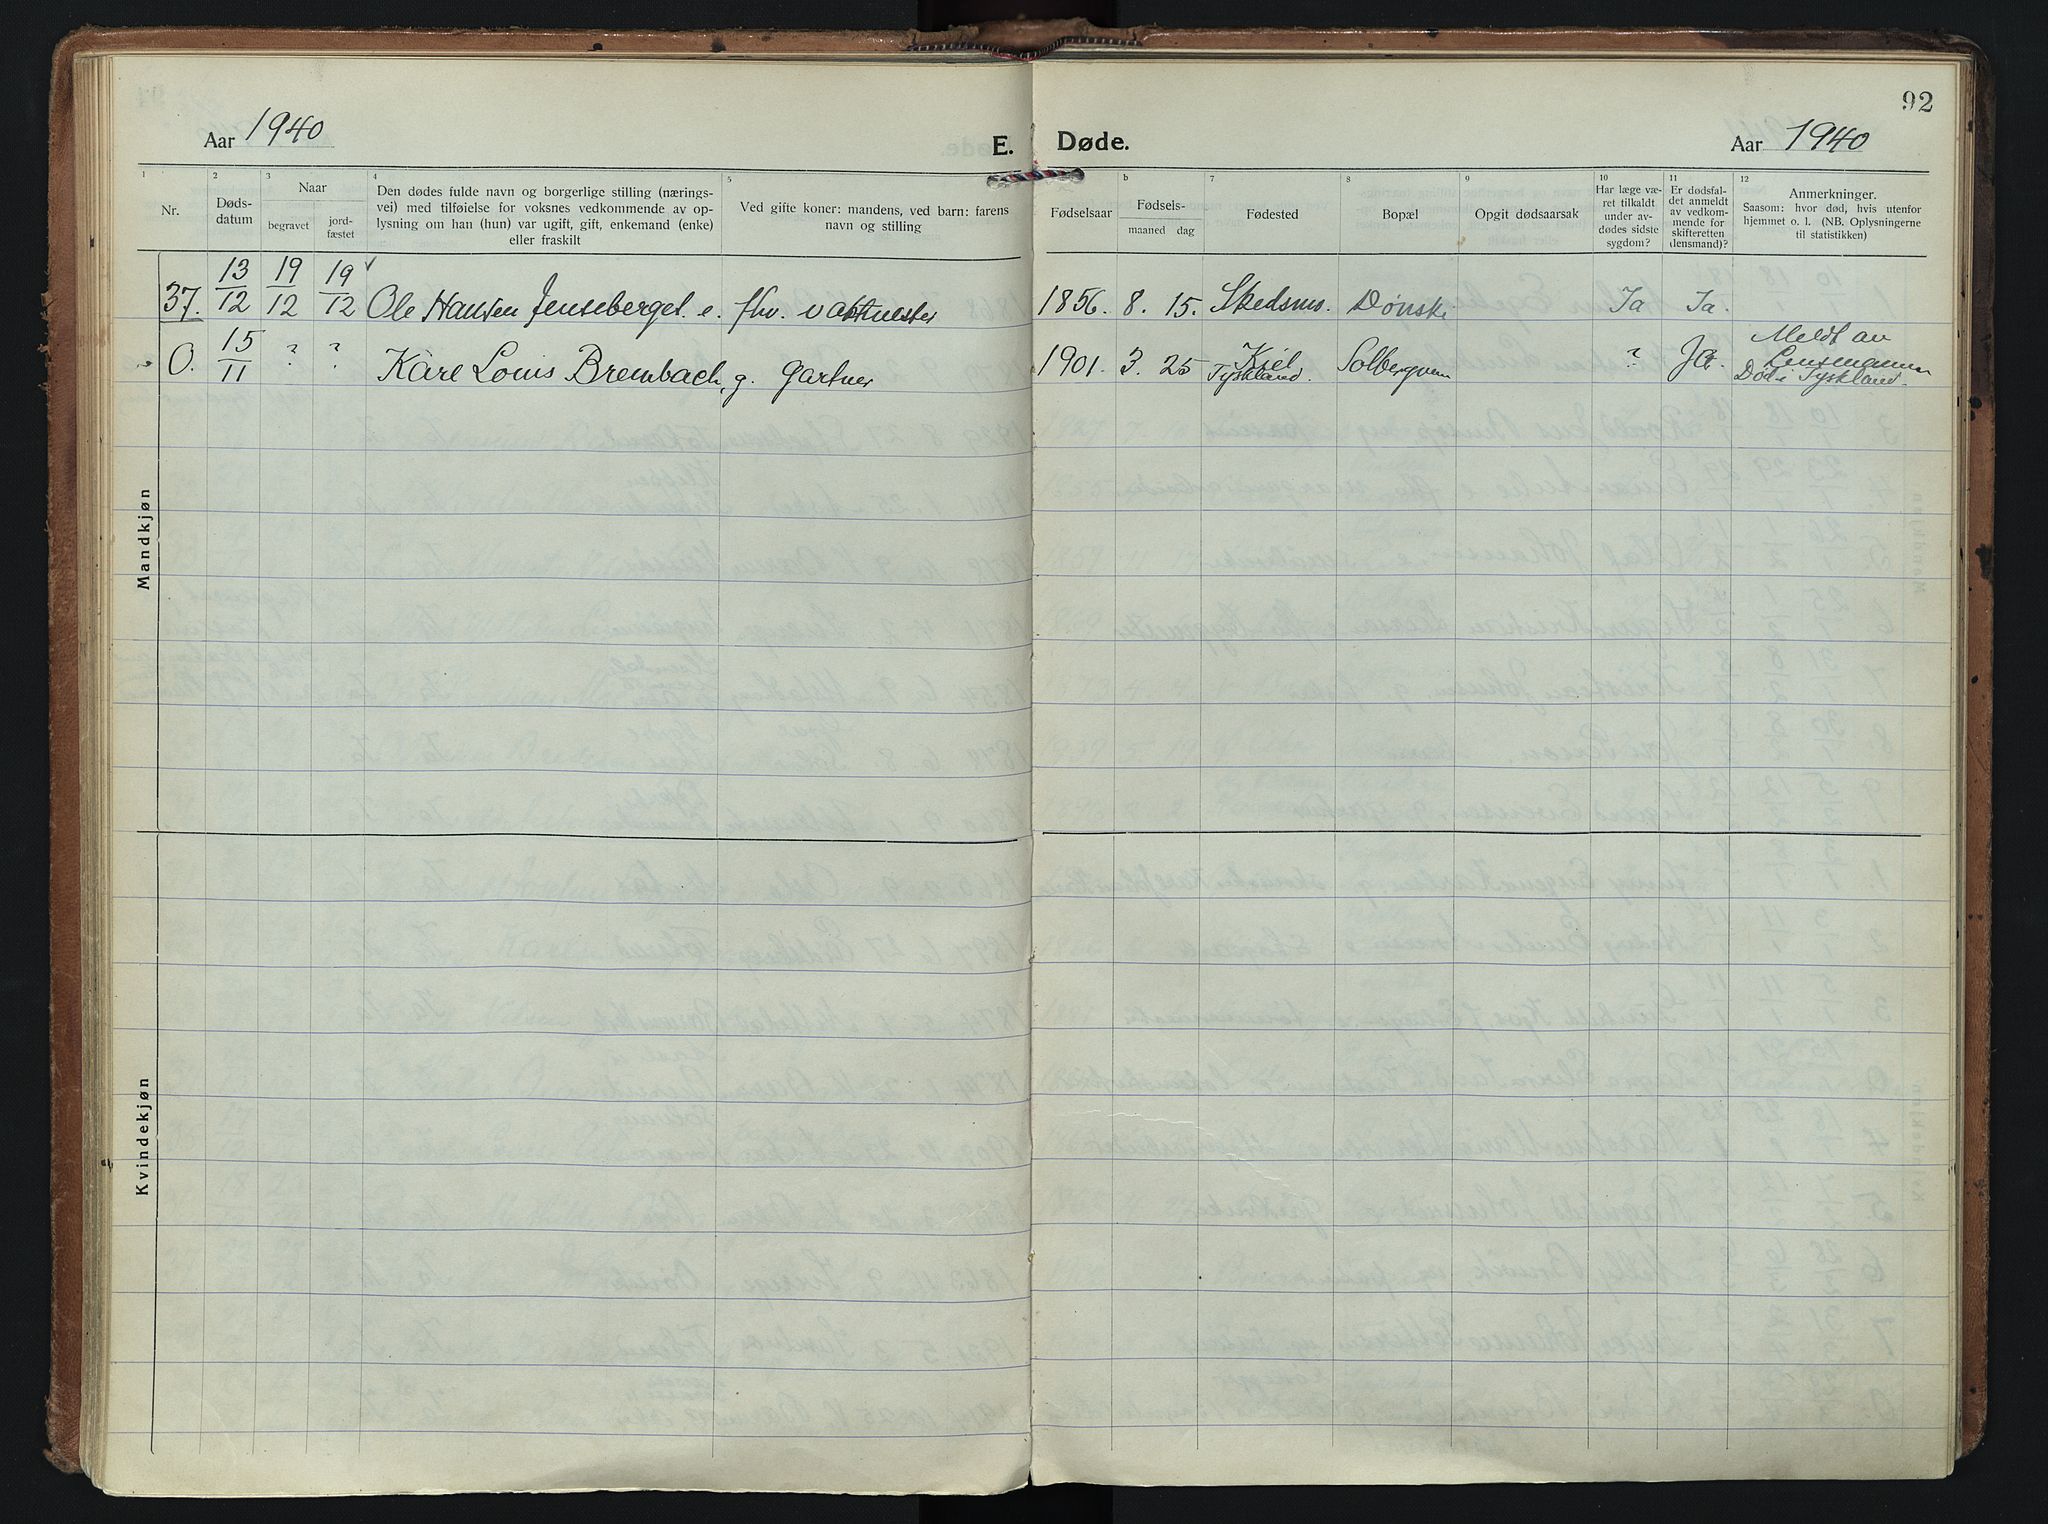 Aar 1940
E. Døde.
Aar 1940
92
1
Nr.
2
Dødsdatum
3
Naar
begravet
jordfæstet
4
Den dødes fulde navn og borgerlige stilling (næringsvei) med tilføielse for voksnes vedkommende av oplysning om han (hun) var ugift, gift, enkemand (enke) eller fraskilt
5
Ved gifte koner: mandens, ved barn: farens navn og stilling
Fødselsaar
b
Fødsels-
maaned dag
7
Fødested
8
Bopæl
9
Opgit dødsaarsak
10
Har læge været tilkaldt under avdødes sidste sygdom?
11
Er dødsfaldet anmeldt av vedkommende for skifteretten (lensmand)?
12
Anmerkninger.
Saasom: hvor død, hvis utenfor hjemmet o. l. (NB. Oplysningerne til statistikken)
Mandkjøn
37. 13/12 19/12 19/12 Ole Hansen Jenseberget. e. fhv. 1856. 8. 15. Skedsmo. Dønski Ja Ja.
0. 15/11 ? ? Kåre Louis Brembach, g. gartner 1901. 3. 25 Kiel Tyskland. Solbergveien ? Ja Meldt av Lensemannen Død i Tyskland.
Kvindekjøn